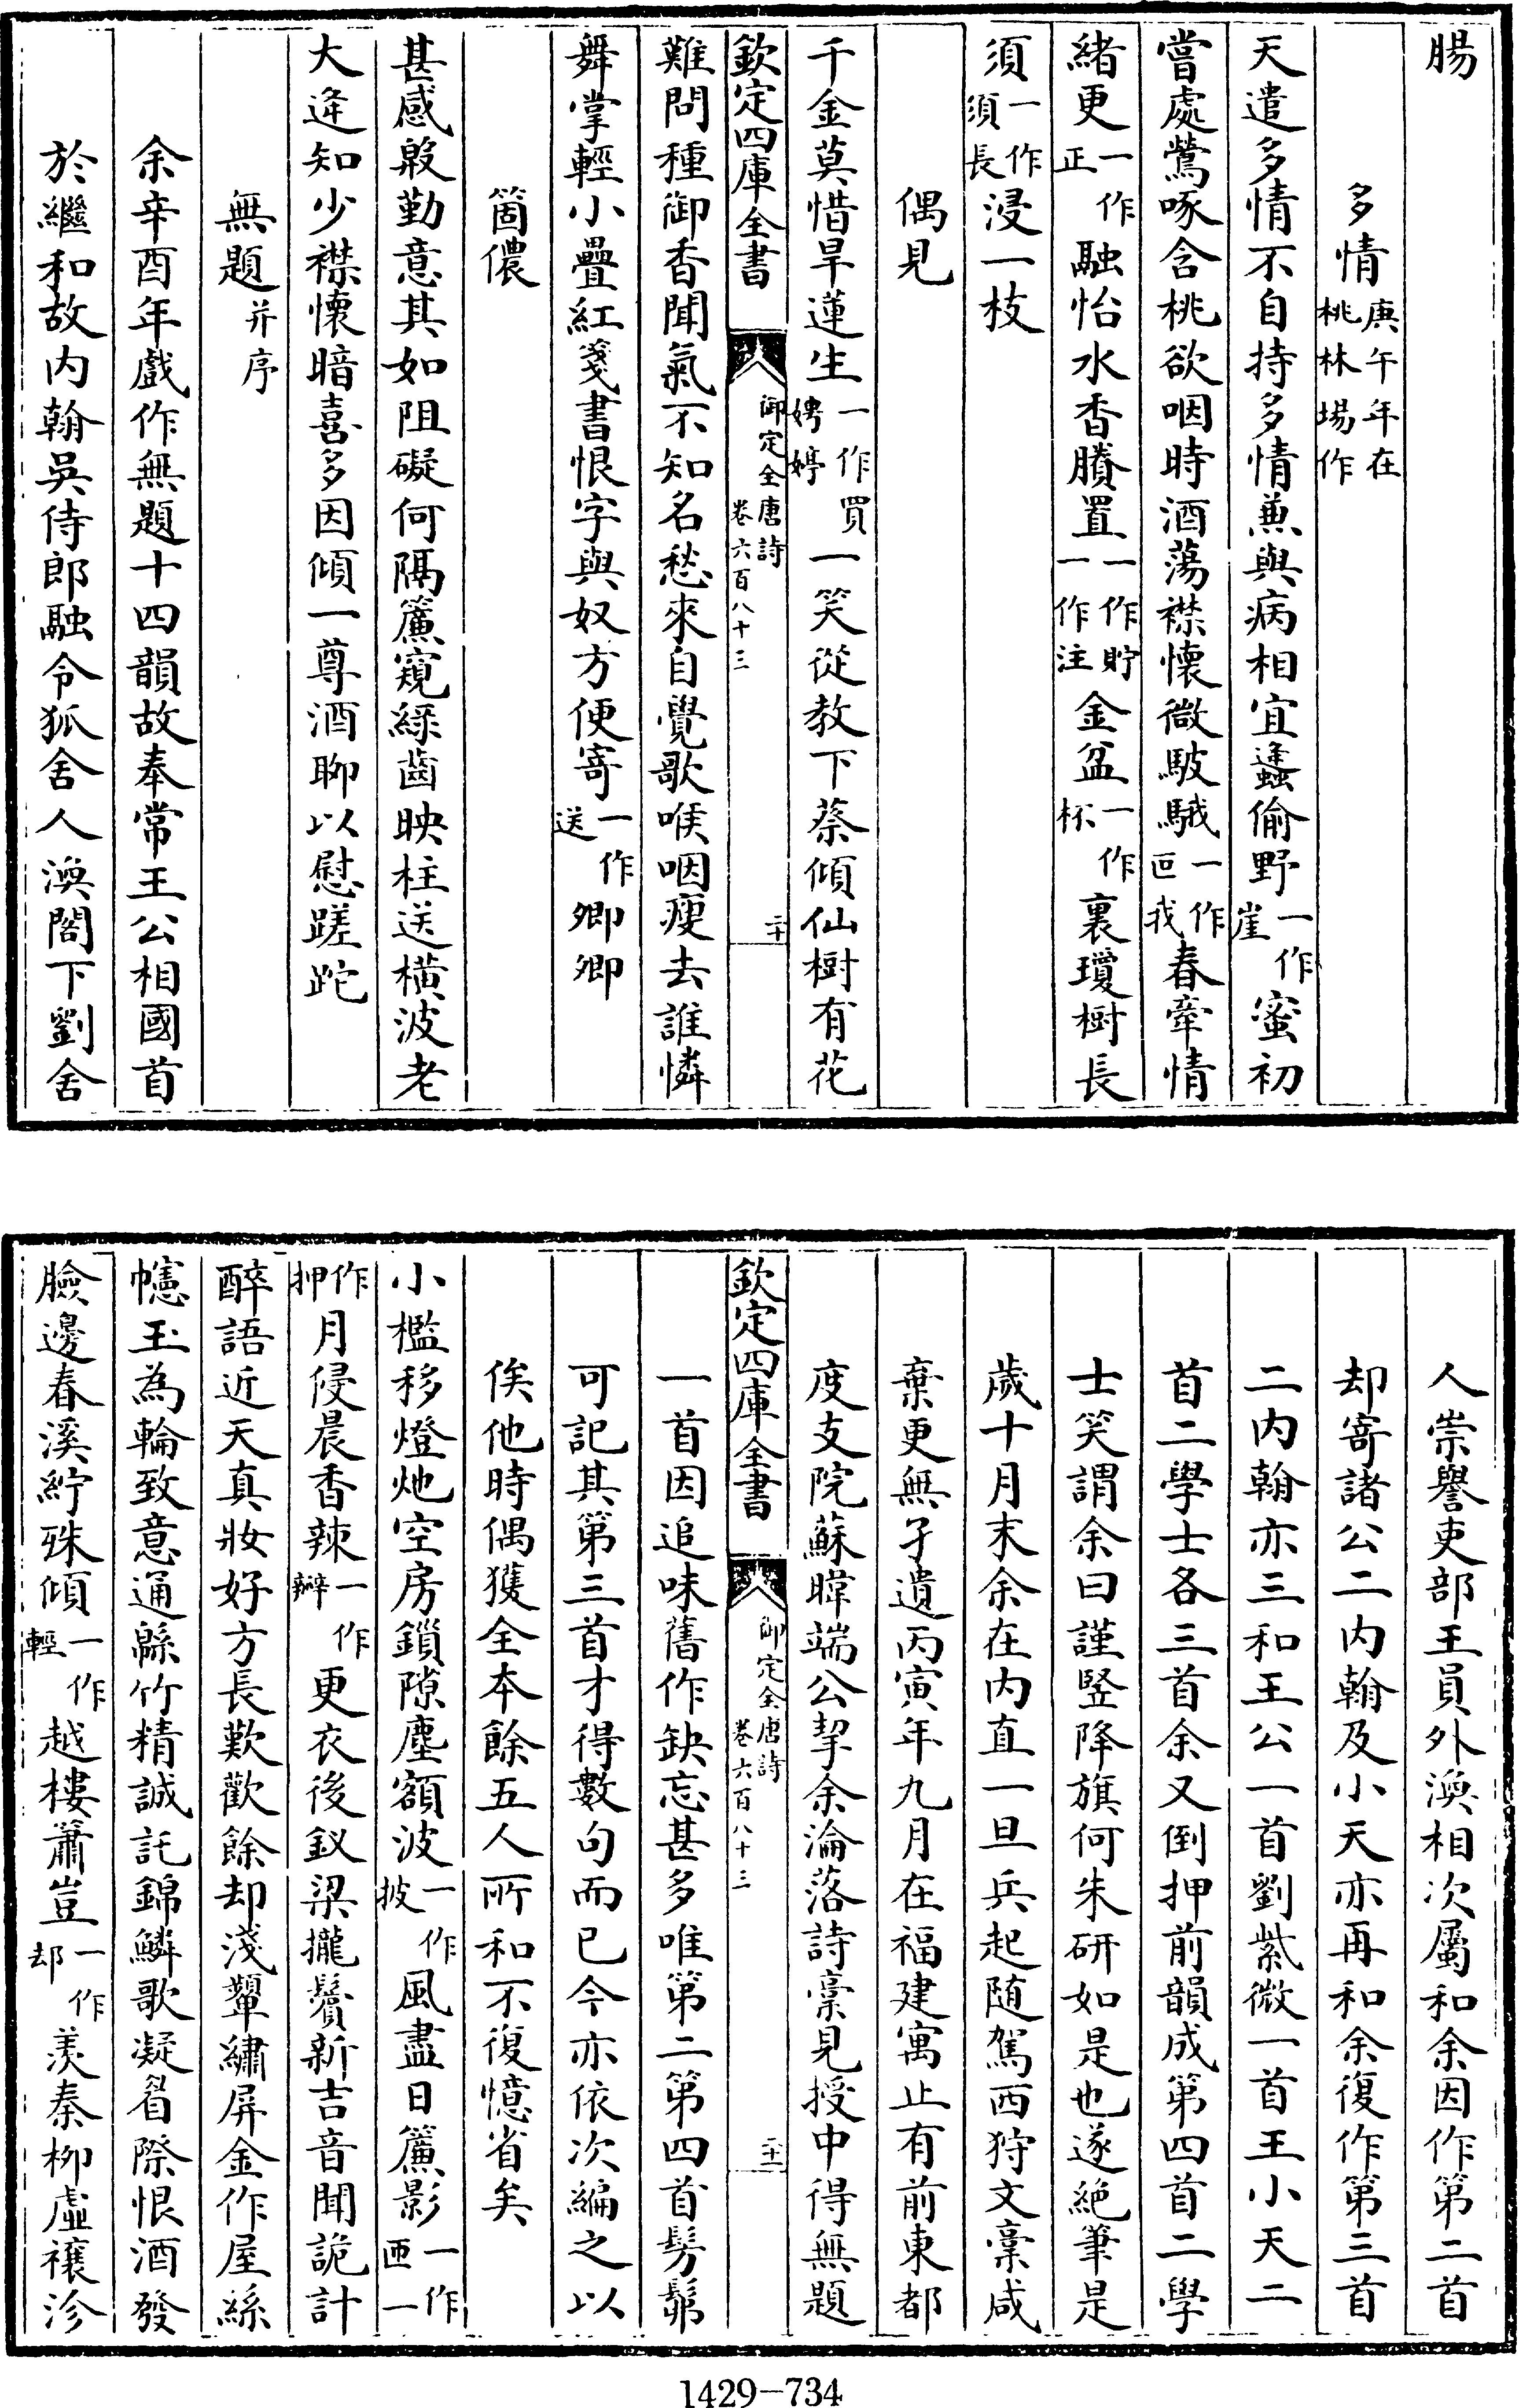 腸
多情庚午年在桃林場作
天遣多情不自持多情兼與病相宜蠭偷野一作崖蜜初
嘗處鶯啄含桃欲咽時酒蕩襟懷微駊騀一作叵我春牽情
緒更一作正融怡水香賸置一作貯一作注金盆一作杯裏瓊樹長
須一作須長浸一枝
偶見
千金莫惜旱蓮生一作買娉婷一笑從教下蔡傾仙樹有花
欽定四庫全書 御定全唐詩 卷六百八十三 二十
難問種御香聞氣不知名愁來自覺歌喉咽瘦去誰憐
舞掌輕小疊紅箋書恨字與奴方便寄一作送卿卿
箇儂
甚感殷勤意其如阻礙何隔簾窺綠齒映柱送橫波老
大逄知少襟懷暗喜多因傾一尊酒聊以慰蹉跎
無題并序
余辛酉年戲作無題十四韻故奉常王公相國首
於繼和故内翰吳侍郎融令狐舍人渙閣下劉舍
人崇譽吏部王員外渙相次屬和余因作第二首
却寄諸公二内翰及小天亦再和余復作第三首
二内翰亦三和王公一首劉紫微一首王小天二
首二學士各三首余又倒押前韻成第四首二學
士笑謂余曰謹竪降旗何朱研如是也遂絶筆是
歲十月末余在内直一旦兵起随駕西狩文稾咸
棄更無孑遺丙寅年九月在福建寓止有前東都
度支院蘇暐端公挈余淪落詩稾見授中得無題
欽定四庫全書 御定全唐詩 卷六百八十三 二十一
一首因追味舊作缺忘甚多唯第二第四首髣髴
可記其第三首才得數句而已今亦依次編之以
俟他時偶獲全本餘五人所和不復憶省矣
小檻移燈灺空房鎖隙塵額波一作披風盡日簾影一作一匝
作押月侵晨香辣一作辮更衣後釵梁攏鬢新吉音聞詭計
醉語近天真妝好方長歎歡餘却淺顰繡屏金作屋絲
幰玉為輪致意通緜竹精誠託錦鱗歌凝眉際恨酒發
臉邊春溪紵殊傾一作輕越樓簫豈一作却羨秦柳虛禳沴
1429-734